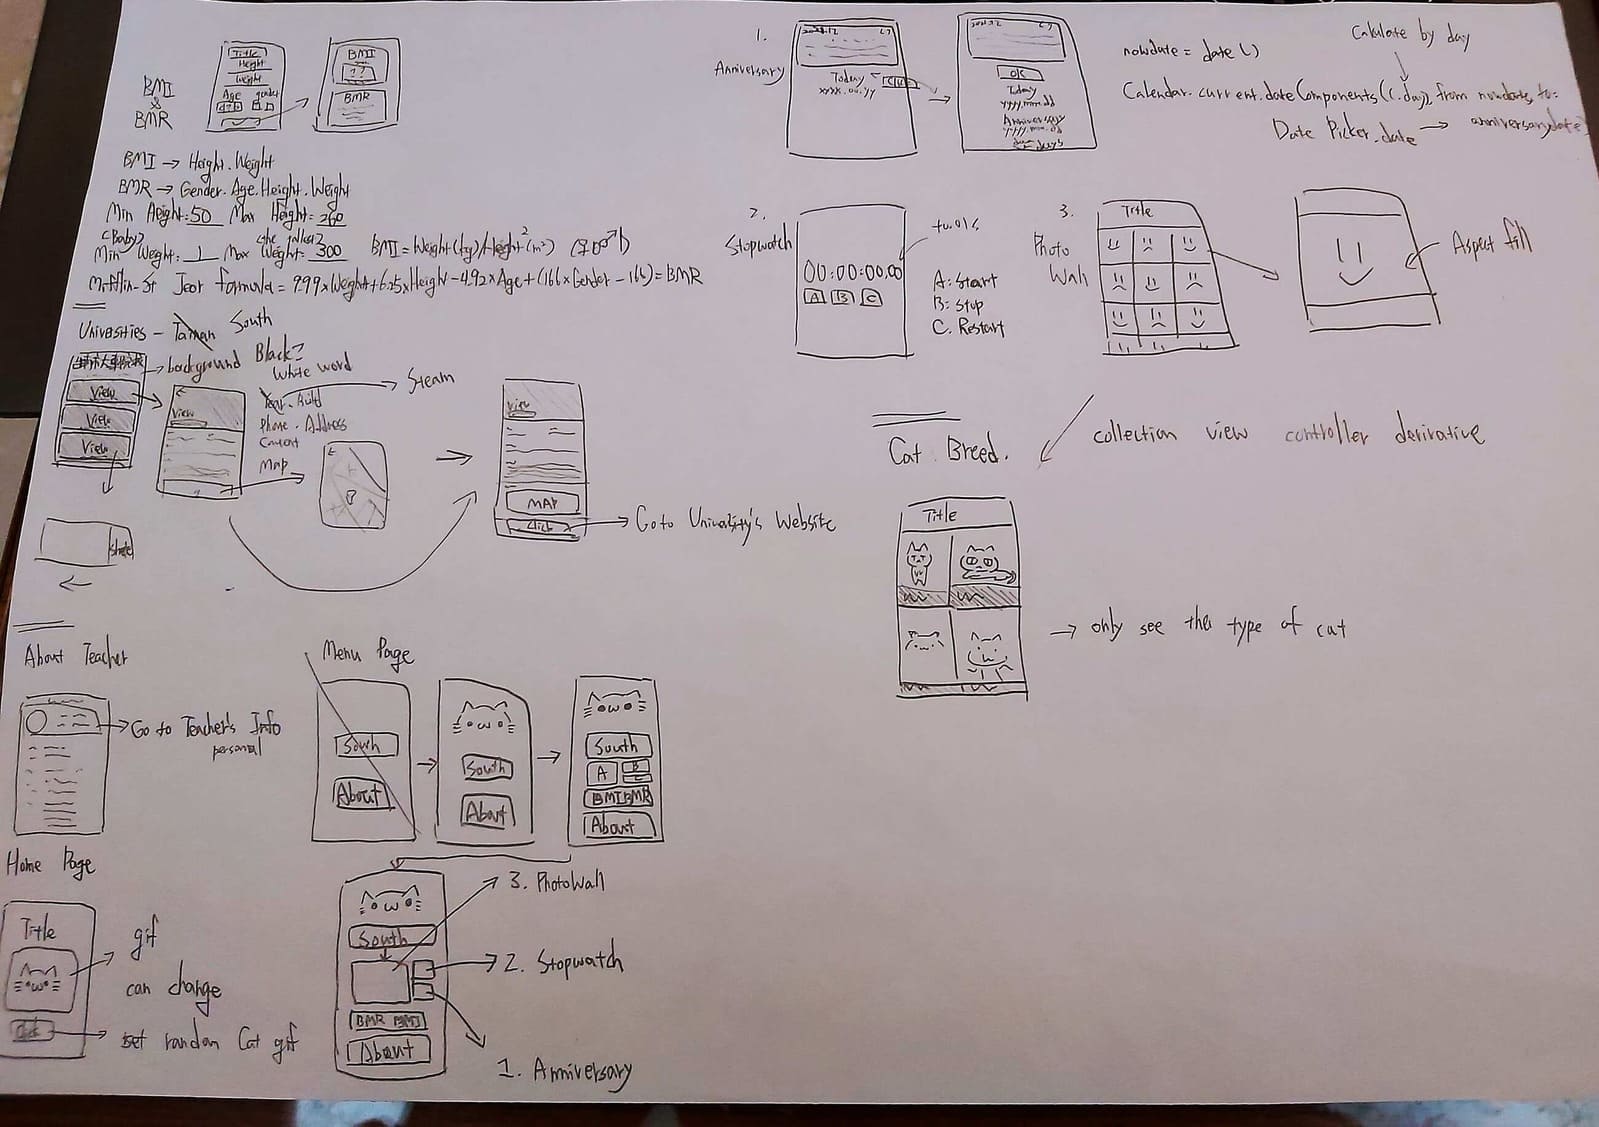 BMI
&
BMR
Title
Height
Weight
Age gender
BMI
??
BMR
BMI → Height. Weight
BMR → Gender. Age. Height. Weight
Min Height: 50 Max Height: 260
(Baby)
Min Weight: 1 Max Weight: 300
BMI = Weight (kg) / Height² (m²)
Mifflin-St Jeor formula = 9.99 × Weight + 6.25 × Height - 4.92 × Age + (166 × Gender - 161) = BMR
Universities - Tainan South
View
View
View
→ background Black?
White word
View
Year. Build → Steam
Phone. Address
Content
Map
View
MAP
Click → Go to University's Website
About Teacher
→ Go to Teacher's Info
personal
Menu Page
South
About
→
South
About
→
South
A B C
BMI BMR
About
South
BMR BMI
About
3. Photo Wall
2. Stopwatch
1. Anniversary
Home Page
Title
gif
can change
set random Cat gif
1.
Anniversary
Today
xxxx.00.yy
OK
Today
yyyy.mm.dd
Anniversary
yyyy.mm.dd
days
nowdate = date()
Calculate by day
Calendar.current.dateComponents((.day), from nowdate, to:
Date Picker.date → anniversarydate)
2.
Stopwatch
00:00:00.00
A B C
A: Start
B: Stop
C. Restart
3.
Photo
Wall
Title
Aspect fill
Cat Breed.
collection view controller derivative
Title
→ only see the type of cat